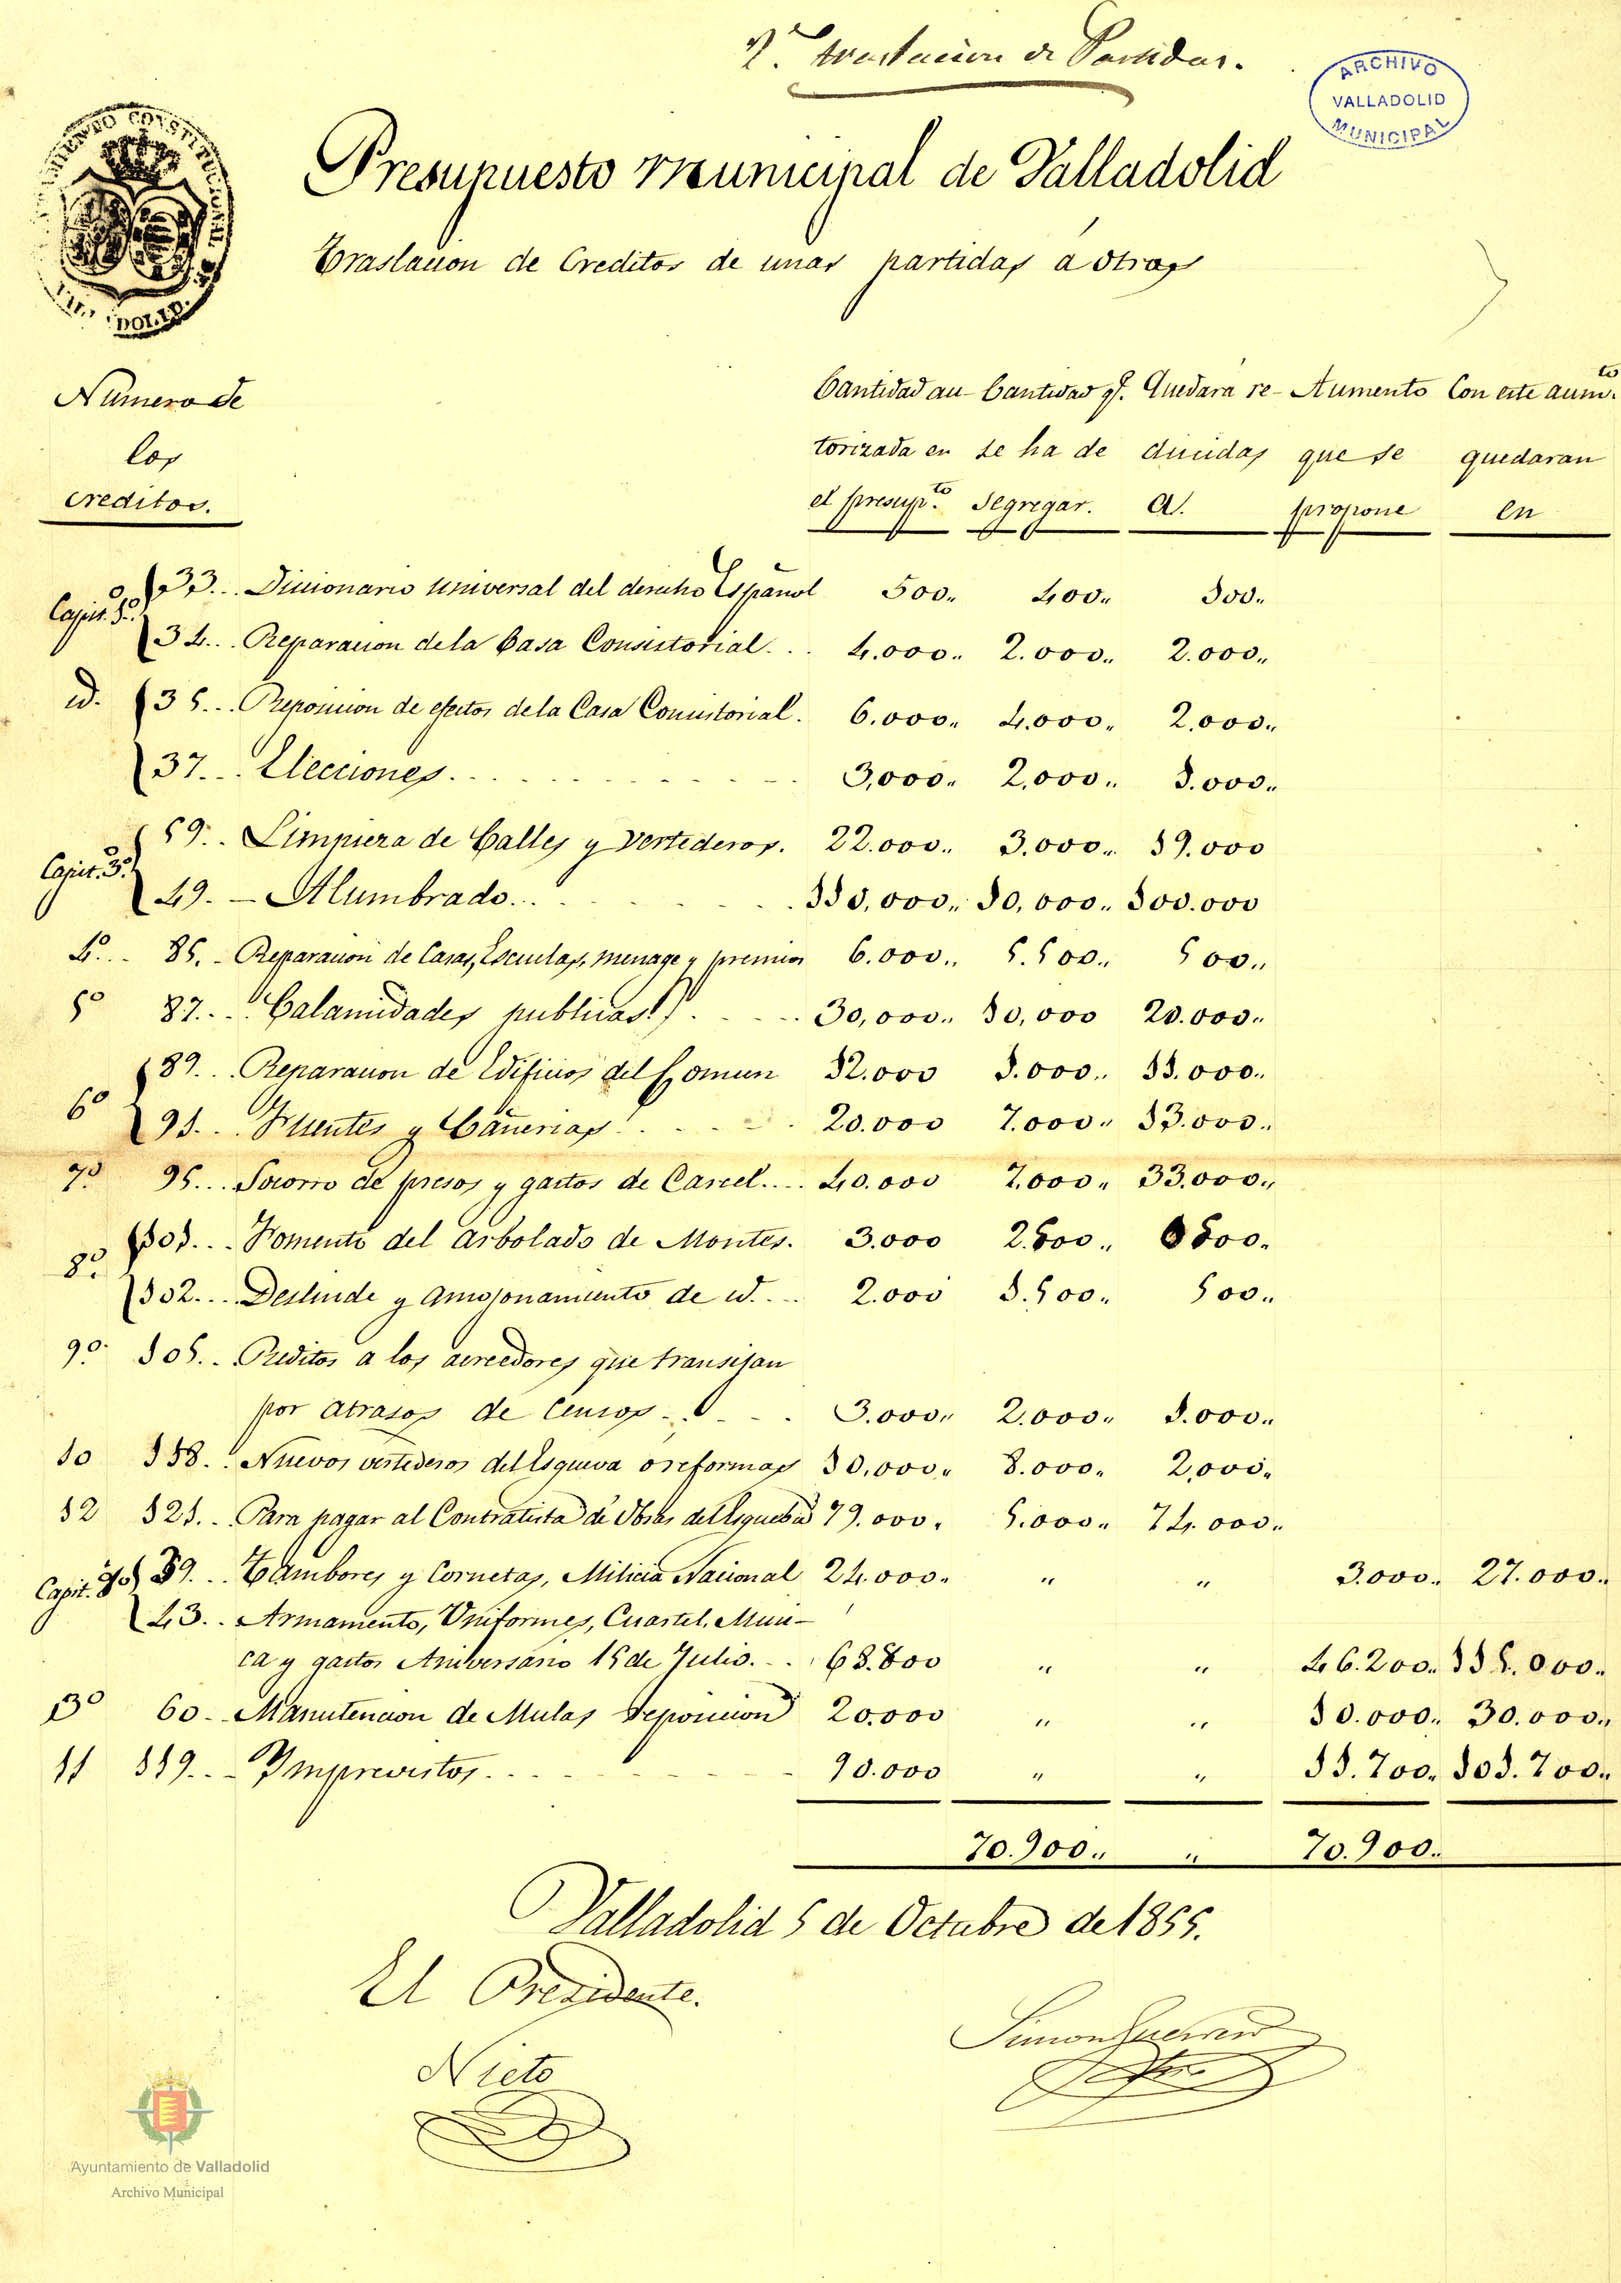 2ª traslacion de Partidas.
ARCHIVO
VALLADOLID
MUNICIPAL
AYUNTAMIENTO CONSTITUCIONAL
VALLADOLID.
Presupuesto municipal de Valladolid
Traslacion de Creditos de unas partidas á otras
Numero de
los
creditos.
Cantidad au- Cantidad qe. Quedará re- Aumento Con este aumto.
torizada en se ha de ducidas que se quedaran
el presupto. Segregar. A. propone en
Capit. 1º. 33... Diccionario universal del derecho Español 500,, 400,, 100,,
34... Reparacion de la Casa Consistorial... 4.000,, 2.000,, 2.000,,
id. 35... Reposicion de efectos de la Casa Consistorial. 6.000,, 4.000,, 2.000,,
37... Elecciones. 3,000,, 2,000,, 1.000,,
Capit. 3º. 59.. Limpieza de Calles y vertederos. 22.000,, 3.000,, 19.000
49. - Alumbrado... 110,000,, 10,000,, 100.000
4º... 85. - Reparacion de Casas, Escuelas, menage y premios 6.000,, 5.500,, 500,,
5º 87... Calamidades publicas 30,000,, 10,000 20.000,,
6º 89... Reparacion de Edificios del Comun 12.000 1.000,, 11.000,,
91... Fuentes y Cañerias 20.000 7.000,, 13.000,,
7º. 95... Socorro de presos y gastos de Carcel.... 40.000 7.000,, 33.000,,
8º. 101... Fomento del arbolado de Montes. 3.000 2.500,, 500,,
102... Deslinde y amojonamiento de id... 2.000 1.500,, 500,,
9º. 105... Reditos a los acreedores que transijan
por atrasos de Censos 3.000,, 2.000,, 1.000,,
10 118.. Nuevos vertederos del Esgueva ó reformas 10,000,, 8.000,, 2,000,,
12 121... Para pagar al Contratista de Obras del Esgueba 79.000, 5.000,, 74.000,,
Capit. 1º 39... Tambores y Cornetas, Milicia Nacional 24.000,, ,, ,, 3.000,, 27.000,,
43.. Armamento, Uniformes, Cuartel, Musi-
ca y gastos Aniversario 15 de Julio... 68.800 ,, ,, 46.200,, 115.000,,
3º 60.. Manutencion de Mulas reposicion 20.000 ,, ,, 10.000,, 30.000,,
11 119... Imprevistos. 90.000 ,, ,, 11.700,, 101.700,,
70.900,, ,, 70.900,,
Valladolid 5 de Octubre de 1855.
El Presidente.
Simon Guerrero
Nieto
Ayuntamiento de Valladolid
Archivo Municipal